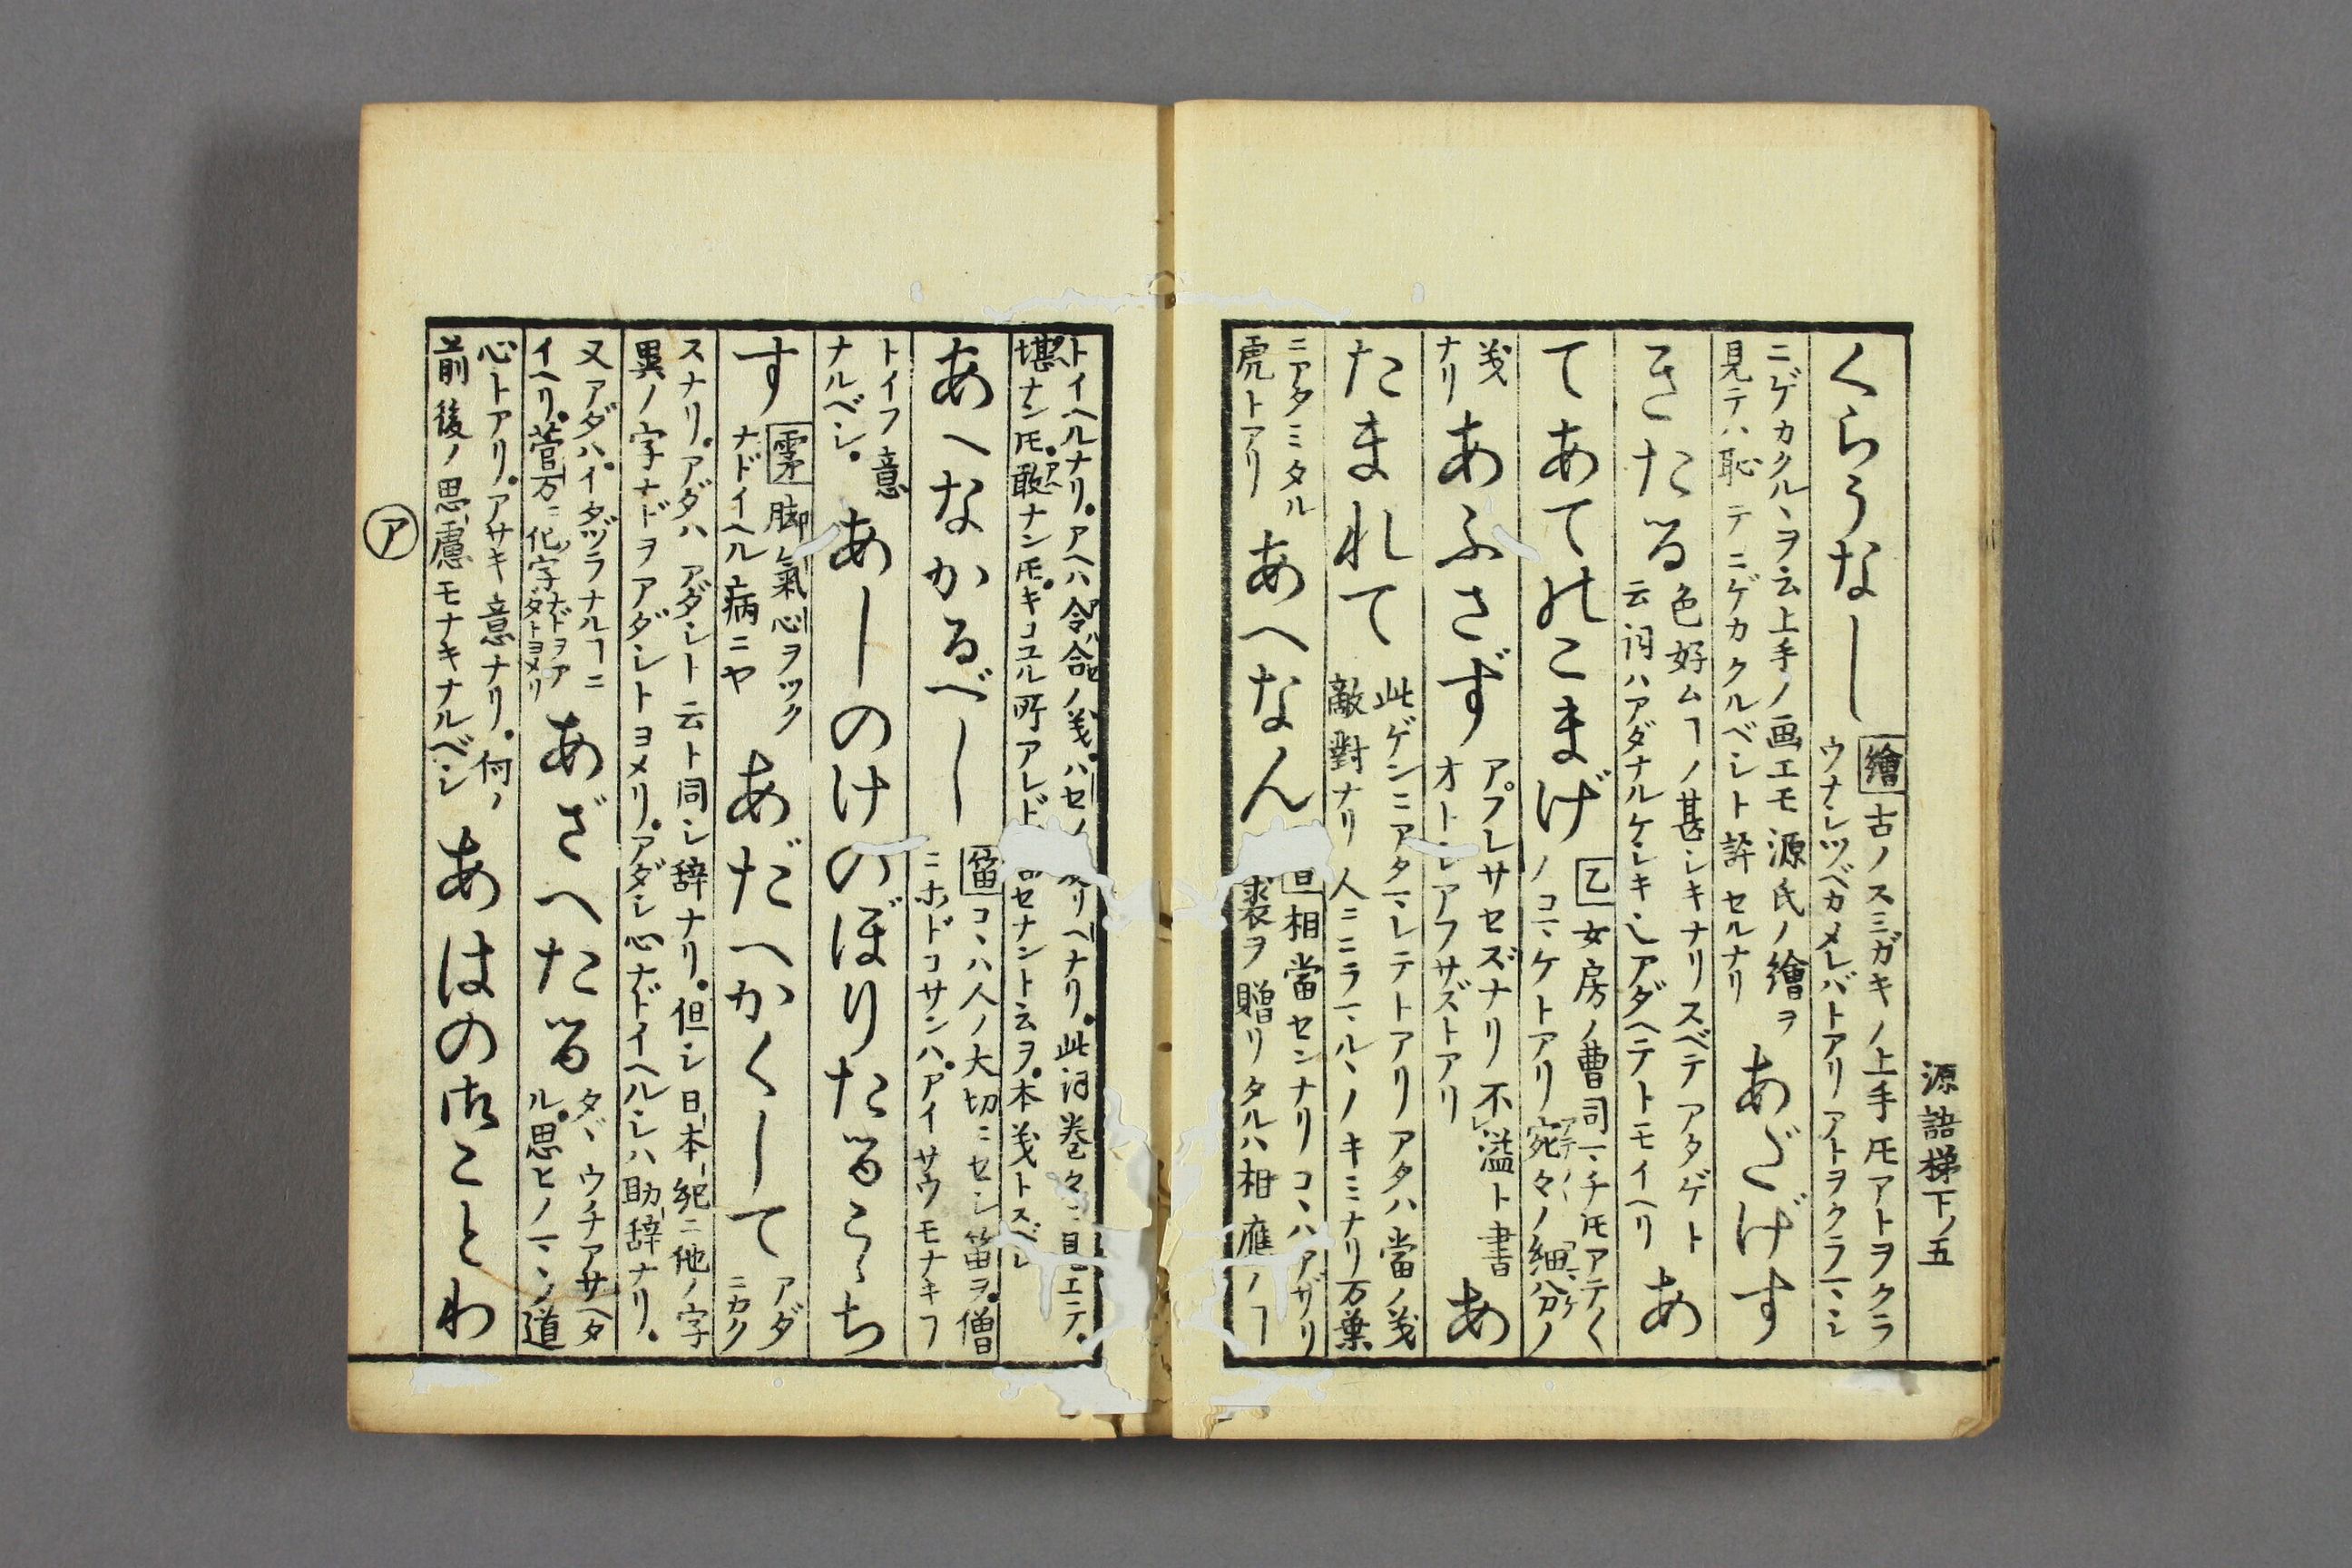 源語梯下ノ五
くらうなし 繪 古ノスミガキノ上手𪜈アトヲクラ
ウナシツベカメレバトアリアトヲクラマシ
ニゲカクルヽヲ云上手ノ画エモ源氏ノ繪ヲ
見テハ恥テニゲカクルベシト許セルナリ あざげす
きたる 色好ムヿノ甚シキナリスベテアタゲト
云詞ハアダナルケシキ也アダヘテトモイヘリ あ
てあてのこまげ 乙 女房ノ曹司マチ𪜈アテ〱
ノコマケトアリ宛々ノ細分ノ
義
ナリ あふさず アフレサセズナリ不溢ト書
オトシアフサズトアリ あ
たまれて 此ゲンニアタマレテトアリアタハ當ノ義
敵對ナリ人ニニラマルヽノキミナリ万葉
ニアタミタル
虎トアリ あへなん 相當センナリコヽハアザリ
裘ヲ贈リタルハ相應ノヿ
トイヘルナリ。アヘハ令合ノ義。ハセノ リヘナリ。此詞巻々ニ見エテ。
堪ナン𪜈。敢ナン𪜈。キコユル所アレド セナント云ヲ。本義トスベシ
あへなかるべし 笛 コヽハ人ノ大切ニセシ笛ヲ。僧
ニホドコサンハ。アイサウモナキヿ
トイフ意
ナルベシ。 あしのけのぼりたるこゝち
す 雫 脚氣心ヲツク
ナドイヘル病ニヤ あだへかくして アダ
ニカク
スナリ。アダハアダシト云ト同シ辞ナリ。但シ日本紀ニ他ノ字
異ノ字ナドヲアダシトヨメリ。アダシ心ナドイヘルシハ助辞ナリ。
又アダハ。イタヅラナルヿニ
イヘリ。菅万ニ化字ナドヲアダトヨメリ あざへたる タヾウチアサヘタ
ル。思ヒノマヽノ道
心トアリ。アサキ意ナリ。何ノ
前後ノ思慮モナキナルベシ あはの御ことわ
ア